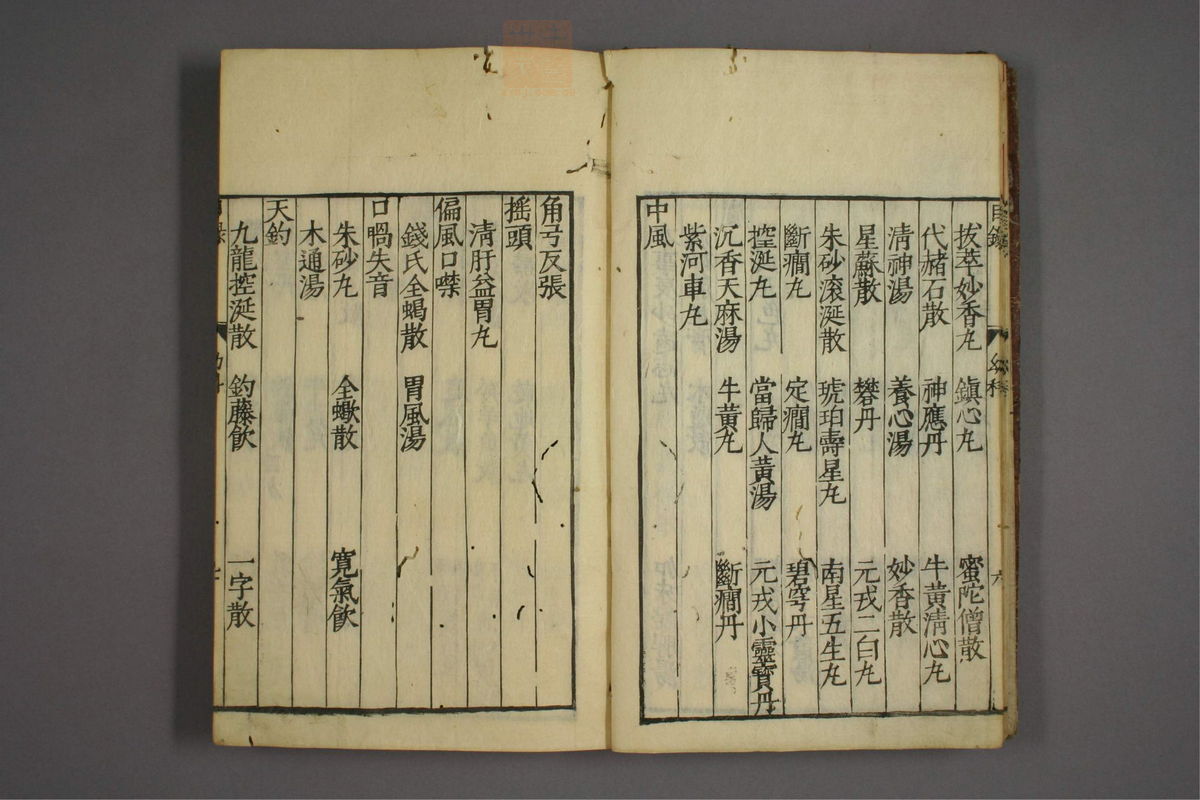 拔萃妙香丸　鎮心丸　蜜陀僧散
代赭石散　神應丹　牛黃清心丸
清神湯　養心湯　妙香散
星蘇散　礬丹　元戎二白丸
朱砂滚涎散　琥珀壽星丸　南星五生丸
斷癎丸　定癎丸　碧穹丹
控涎丸　當歸人黃湯　元戎小靈寶丹
沉香天麻湯　牛黃丸　斷癎丹
紫河車丸
中風
角弓反張
摇頭
清肝益胃丸
偏風口噤
錢氏全蝎散　胃風湯
口喎失音
朱砂丸　全蠍散　寛氣飮
木通湯
天釣
九龍控涎散　釣藤飮　一字散